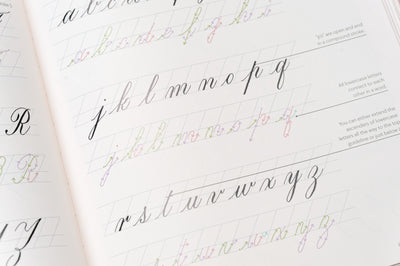 a b c d e f g h i
a b c d e f g h i
"b's" are open and end
in a compound stroke.
j k l m n o p q
j k l m n o p q
All lowercase letters
connect to each
other in a word.
You can either extend the
ascenders of lowercase
letters all the way to the top
guideline or just below
R
R
r s t u v w x y z
t u v w x y z